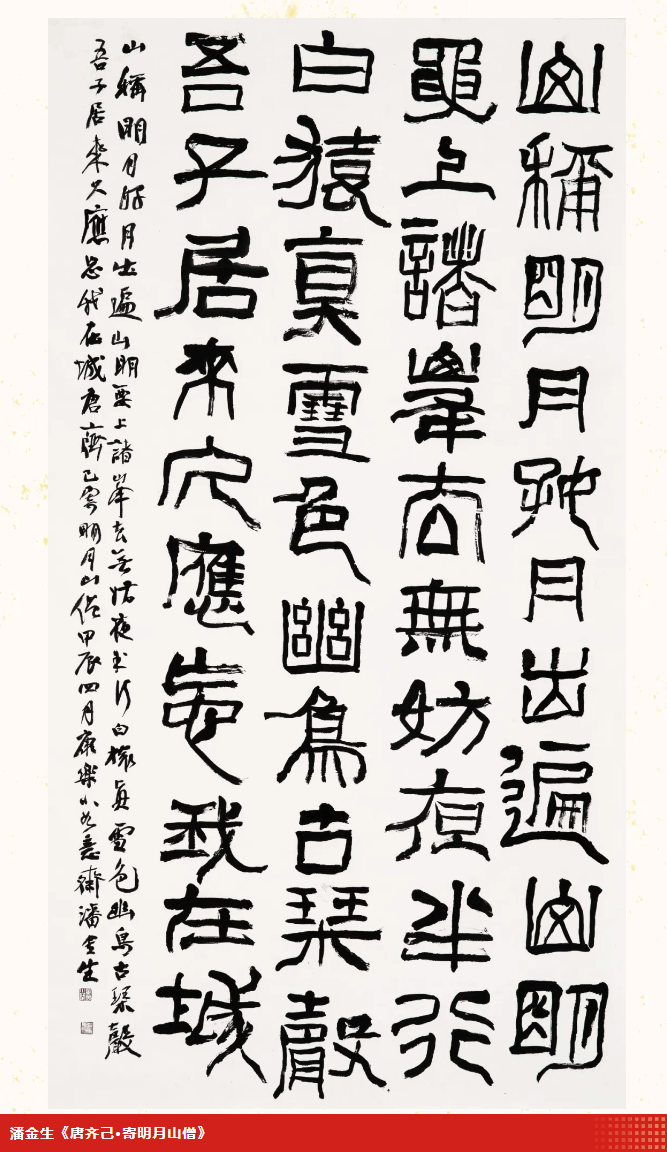 山稱明月好月出遍山明
要上諸峯去無妨夜半行
白猿真雪色幽鳥古琴聲
吾子居來久應忘我在城
山稱明月好月出遍山明要上諸峯去無妨夜半行白猿真雪色幽鳥古琴聲
吾子居來久應忘我在城唐齊己寄明月山僧甲辰四月康樂小如意齋潘金生
潘金生《唐齐己•寄明月山僧》